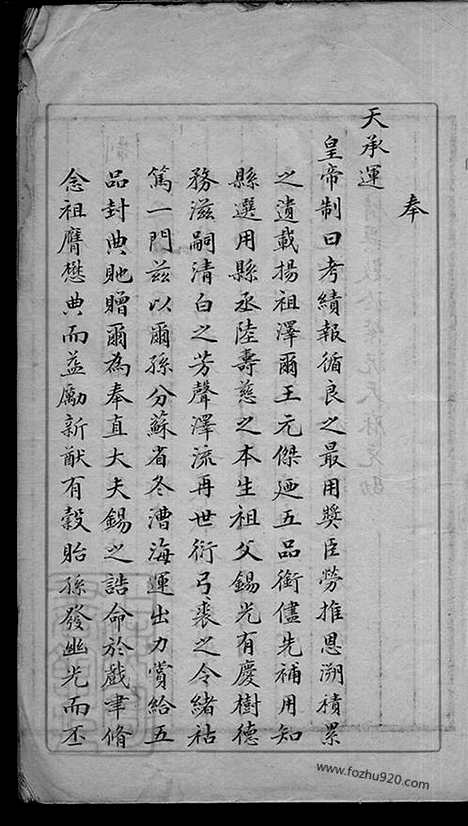 奉
天承運
皇帝制曰考績報循良之最用獎臣勞推恩溯積累
之遺載揚祖澤爾王元傑廼五品銜儘先補用知
縣選用縣丞陸壽慈之本生祖父錫光有慶樹德
務滋嗣清白之芳聲澤流再世衍弓裘之令緒祜
篤一門茲以爾孫分蘇省冬漕海運出力賞給五
品封典貤贈爾為奉直大夫錫之誥命於戲聿脩
念祖膺懋典而益勵新猷有穀貽孫發幽光而丕
www.fozhu920.com